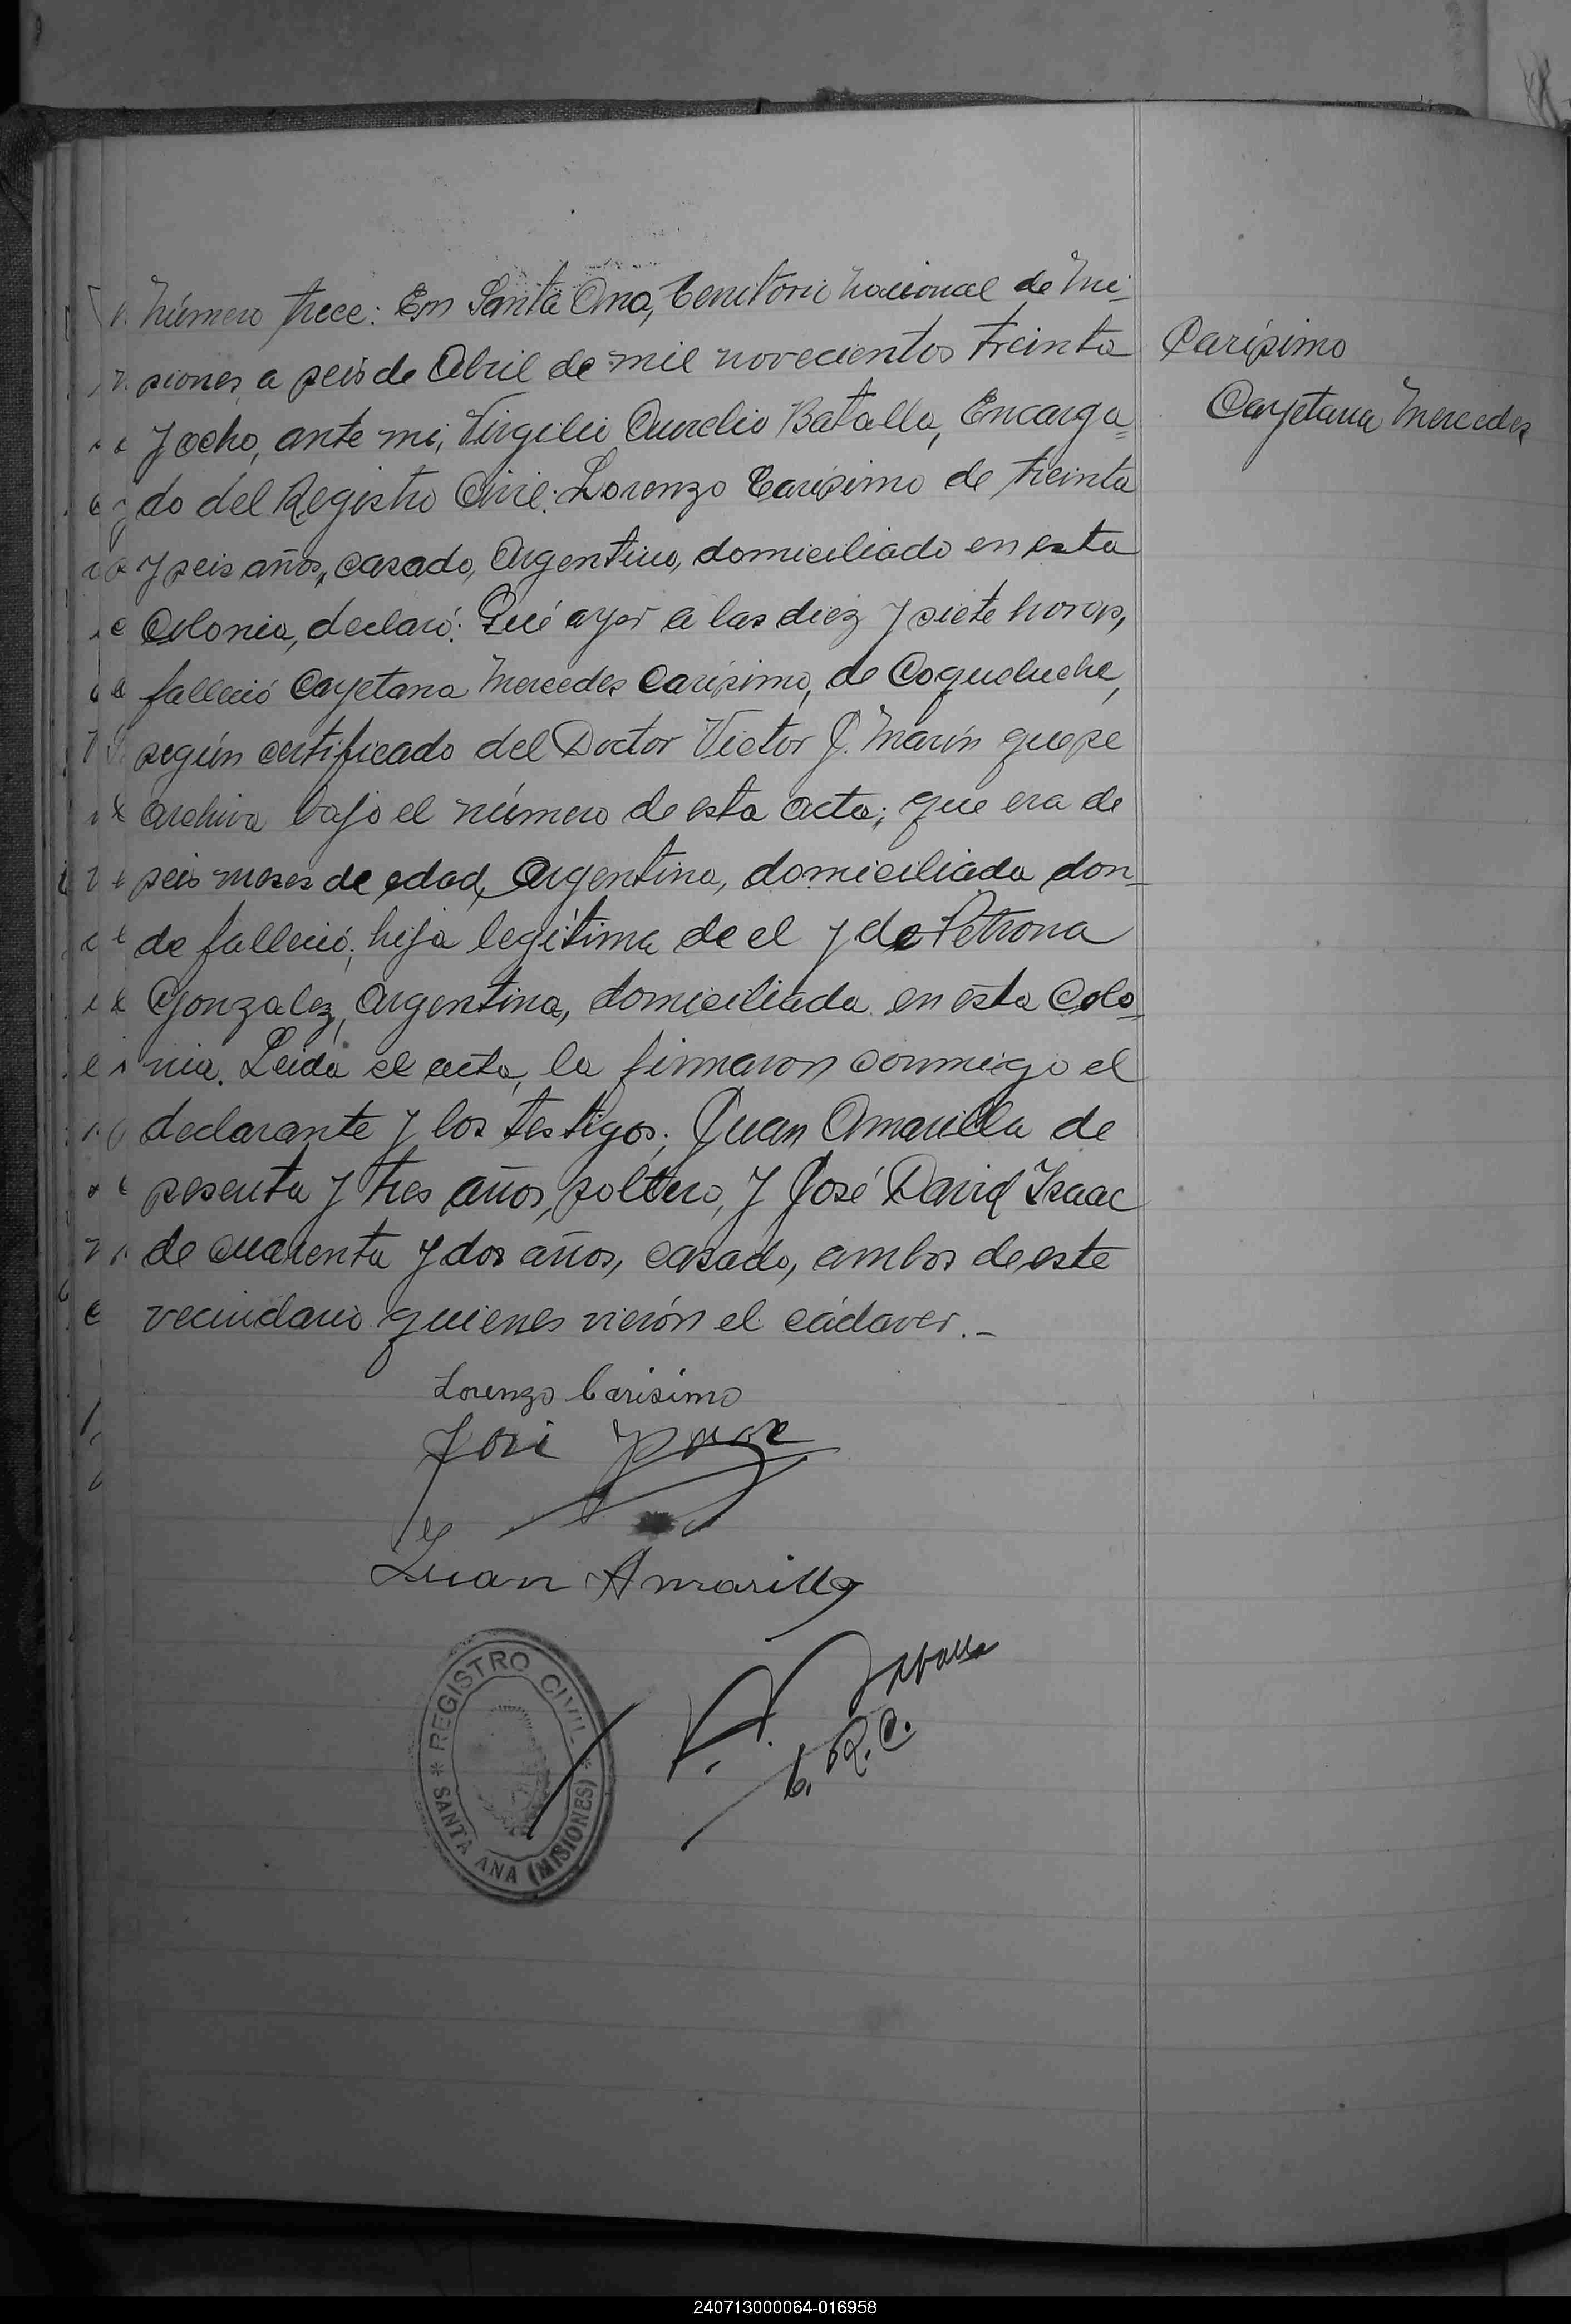 Número trece: En Santa Ana, Territorio Nacional de Mi-
siones, a seis de Abril de mil novecientos treinta
y ocho, ante mi, Virgilio Aurelio Batalla, Encarga=
do del Registro Civil: Lorenzo Carísimo de treinta
y seis años, casado, Argentino, domiciliado en esta
Colonia, declaró: Qué ayer a las diez y siete horas,
falleció Cayetana Mercedes Carísimo, de Coqueluche,
según certificado del Doctor Victor J. Marín que se
archiva bajo el número de esta acta; que era de
seis meses de edad, Argentina, domiciliada don-
de falleció; hija legítima de el y de Petrona
Gonzalez, Argentina, domiciliada en esta Colo=
nia. Leida el acta, la firmaron conmigo el
declarante y los testigos; Juan Amarilla de
sesenta y tres años, soltero, y José David Isaac
de cuarenta y dos años, casado, ambos de este
vecindario quienes vierón el cádaver.-
Carísimo
Cayetana Mercedes
Lorenzo Carisimo
José
Juan Amarilla
REGISTRO CIVIL
SANTA ANA (MISIONES)
E. R. C.
240713000064-016958